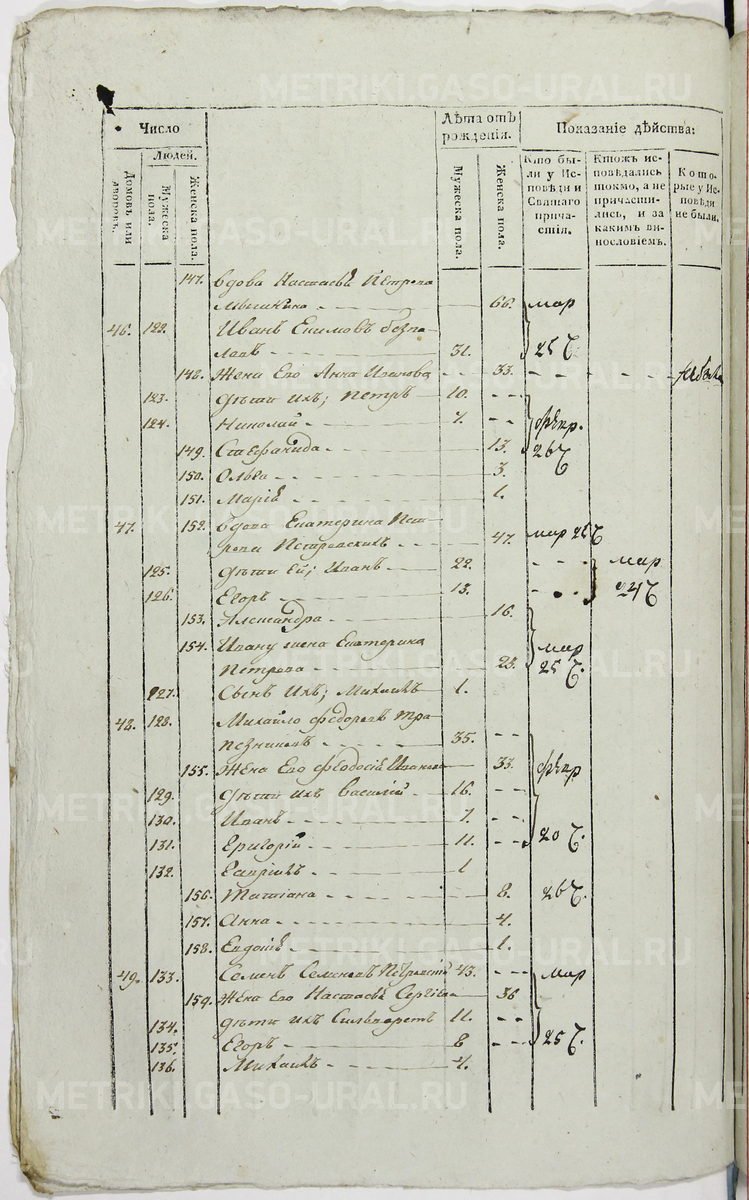 METRIKI.GASO-URAL.RU
Число
Людей.
Домовъ или дворовъ.
Мужеска пола.
Женска пола.
Лѣта отъ рожденія.
Мужеска пола.
Женска пола.
Показаніе дѣйства:
Кто бы-
ли у Ис-
повѣди и
Святаго
прича-
стія.
Ктожъ ис-
повѣдались
токмо, а не
причасти-
лись, и за
какимъ ви-
нословіемъ.
Кото-
рые у Ис-
повѣди
не были.
147. вдова Настасья Петрова
66. мар
46. 122. Иванъ Екимовъ
31. 25 Ч.
148. Жена Его Анна Иванова 33.
123. дѣти ихъ; Петръ 10.
124. Николай 7. февр.
149. Стефанида 13. 26 Ч
150. Ольга 3.
151. Марія 1.
47. 152. вдова Екатерина Пет-
рова 47. мар 25 Ч
125. дѣти Ей; Иванъ 22. мар
126. Егоръ 13. 24 Ч
153. Александра 16.
154. Ивану жена Екатерина мар
Петрова 25. 25 Ч.
127. Сынъ Ихъ; Михаилъ 1.
48. 128. Михайло Федоровъ Тра-
пезниковъ 35.
155. Жена Его Феодосія Иванова 33. февр
129. дѣти ихъ Василій 16.
130. Иванъ 7.
131. Григорій 11. 20 Ч.
132. 1
156. Татіана 8. 26 Ч.
157. Анна 4.
158. Евдокія 1.
49. 133. Семенъ Семеновъ 43. мар
159. Жена Его Настасья Сергіева 36
134. дѣти ихъ 11.
135. Егоръ 8 25 Ч.
136. Михаилъ 4.